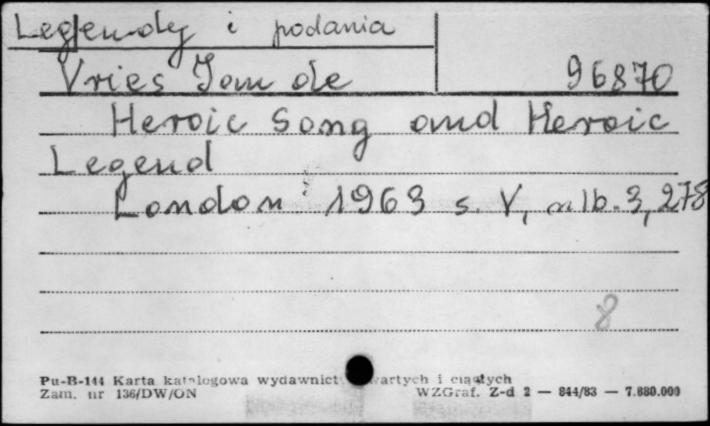 Legendy i podania
Vries Jan de 96870
Heroic Song and Heroic
Legend
London 1963 s. V, nlb. 3, 278
8
Pu-B-144 Karta katalogowa wydawnict wartych i ciągłych
Zam. nr 136/DW/ON WZGraf. Z-d 2 — 844/83 — 7.880.000